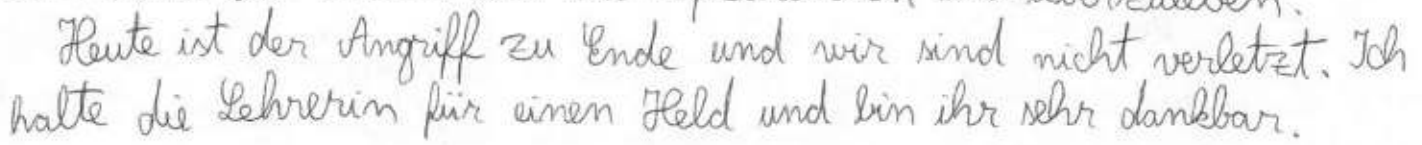 Heute ist der Angriff zu Ende und wir sind nicht verletzt. Ich
halte die Lehrerin für einen Held und bin ihr sehr dankbar.